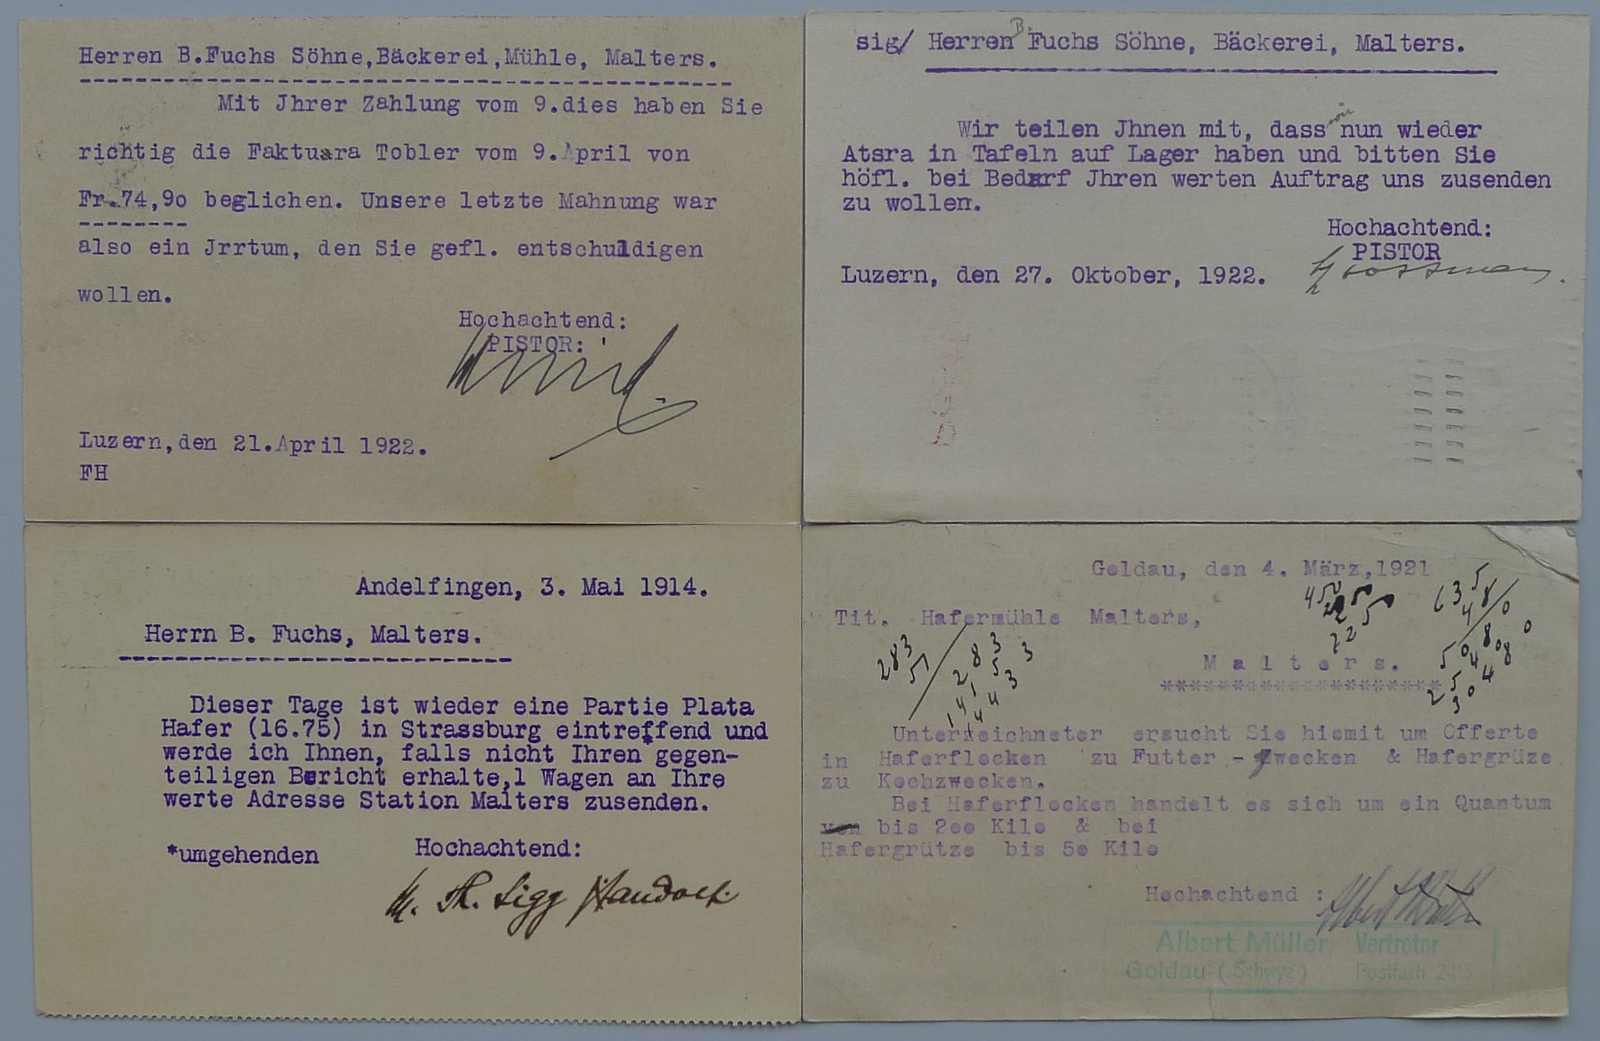 Herren B.Fuchs Söhne,Bäckerei,Mühle, Malters.
Mit Jhrer Zahlung vom 9.dies haben Sie
richtig die Faktuara Tobler vom 9.April von
Fr.74,9o beglichen. Unsere letzte Mahnung war
also ein Jrrtum, den Sie gefl. entschuldigen
wollen.
Hochachtend:
PISTOR:
Luzern,den 21.April 1922.
FH
sig/ Herren B. Fuchs Söhne, Bäckerei, Malters.
Wir teilen Jhnen mit, dass wir nun wieder
Atsra in Tafeln auf Lager haben und bitten Sie
höfl. bei Bedarf Jhren werten Auftrag uns zusenden
zu wollen.
Hochachtend:
PISTOR
Luzern, den 27. Oktober, 1922.
Andelfingen, 3. Mai 1914.
Herrn B. Fuchs, Malters.
Dieser Tage ist wieder eine Partie Plata
Hafer (16.75) in Strassburg eintreffend und
werde ich Ihnen, falls nicht Ihren gegen-
teiligen Bericht erhalte,1 Wagen an Ihre
werte Adresse Station Malters zusenden.
*umgehenden
Hochachtend:
M. Th. Sigg
Goldau, den 4. März,1921
Tit. Hafermühle Malters,
450
635
283
283
Malters.
********************
Unterzeichneter ersucht Sie hiemit um Offerte
in Haferflocken zu Futter - Zwecken & Hafergrüze
zu Kochzwecken.
Bei Haferflocken handelt es sich um ein Quantum
von bis 2oo Kilo & bei
Hafergrütze bis 5o Kilo
Hochachtend :
Albert Müller, Vertreter
Goldau (Schwyz) Postfach